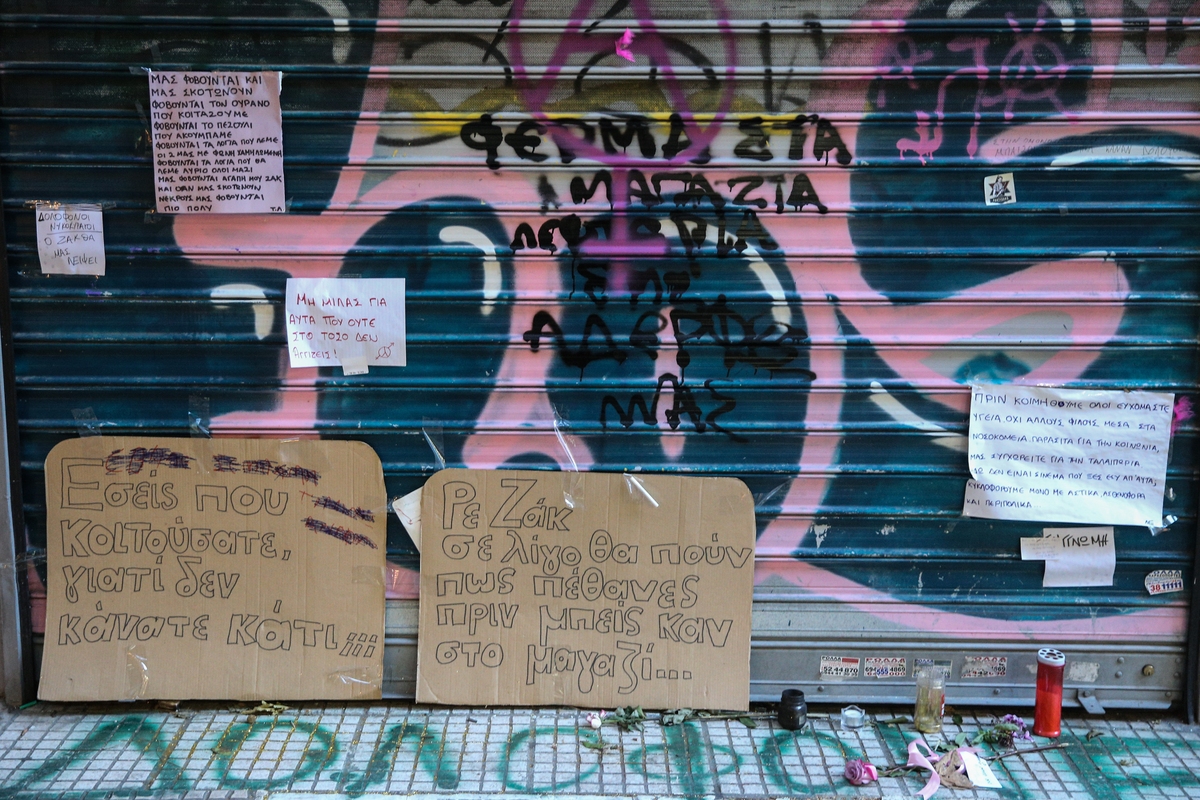 ΜΑΣ ΦΟΒΟΥΝΤΑΙ ΚΑΙ
ΜΑΣ ΣΚΟΤΩΝΟΥΝ
ΦΟΒΟΥΝΤΑΙ ΤΟΝ ΟΥΡΑΝΟ
ΠΟΥ ΚΟΙΤΑΖΟΥΜΕ
ΦΟΒΟΥΝΤΑΙ ΤΟ ΠΕΖΟΥΛΙ
ΠΟΥ ΑΚΟΥΜΠΑΜΕ
ΦΟΒΟΥΝΤΑΙ ΤΑ ΛΟΓΙΑ ΠΟΥ ΛΕΜΕ
ΟΙ 2 ΜΑΣ ΜΕ ΦΩΝΗ ΧΑΜΗΛΩΜΕΝΗ
ΦΟΒΟΥΝΤΑΙ ΤΑ ΛΟΓΙΑ ΠΟΥ ΘΑ
ΛΕΜΕ ΑΥΡΙΟ ΟΛΟΙ ΜΑΖΙ
ΜΑΣ ΦΟΒΟΥΝΤΑΙ ΑΓΑΠΗ ΜΟΥ ΖΑΚ
ΚΑΙ ΟΤΑΝ ΜΑΣ ΣΚΟΤΩΝΟΥΝ
ΝΕΚΡΟΥΣ ΜΑΣ ΦΟΒΟΥΝΤΑΙ
ΠΙΟ ΠΟΛΥ Τ.Λ
ΔΟΛΟΦΟΝΟΙ
ΝΥΚΟΚΥΡΑΙΟΙ
Ο ΖΑΚ ΘΑ
ΜΑΣ
ΛΕΙΨΕΙ
ΜΗ ΜΙΛΑΣ ΓΙΑ
ΑΥΤΑ ΠΟΥ ΟΥΤΕ
ΣΤΟ ΤΟΣΟ ΔΕΝ
ΑΓΓΙΖΕΙΣ!
ΦΕΡΜΑ ΣΤΑ
ΜΑΓΑΖΙΑ
ΛΕΥΤΕΡΙΑ
ΣΤΙΣ
ΑΔΕΡΦΕΣ
ΜΑΣ
ΠΡΙΝ ΚΟΙΜΗΘΟΥΜΕ ΟΛΟΙ ΕΥΧΟΜΑΣΤΕ
ΥΓΕΙΑ ΟΧΙ ΑΛΛΟΥΣ ΦΙΛΟΥΣ ΜΕΣΑ ΣΤΑ
ΝΟΣΟΚΟΜΕΙΑ ΠΑΡΑΣΙΤΑ ΓΙΑ ΤΗΝ ΚΟΙΝΩΝΙΑ,
ΜΑΣ ΣΥΓΧΩΡΕΙΤΕ ΓΙΑ ΤΗΝ ΤΑΛΑΙΠΩΡΙΑ
ΔΩ ΔΕΝ ΕΙΝΑΙ ΣΙΝΕΜΑ ΠΟΥ ΞΕΣ ΕΣΥ ΑΠ'ΑΥΤΑ,
ΚΥΚΛΟΦΟΡΟΥΜΕ ΜΟΝΟ ΜΕ ΑΣΤΙΚΑ ΑΣΘΕΝΟΦΟΡΑ
ΚΑΙ ΠΕΡΙΠΟΛΙΚΑ
ΓΝΩΜΗ
Εσείς που
κοιτούσατε,
γιατί δεν
κάνατε κάτι;;;
Ρε Ζάκ
σε λίγο θα πούν
πως πέθανες
πριν μπείς καν
στο μαγαζί...
ΔΟΛΟΦΟ